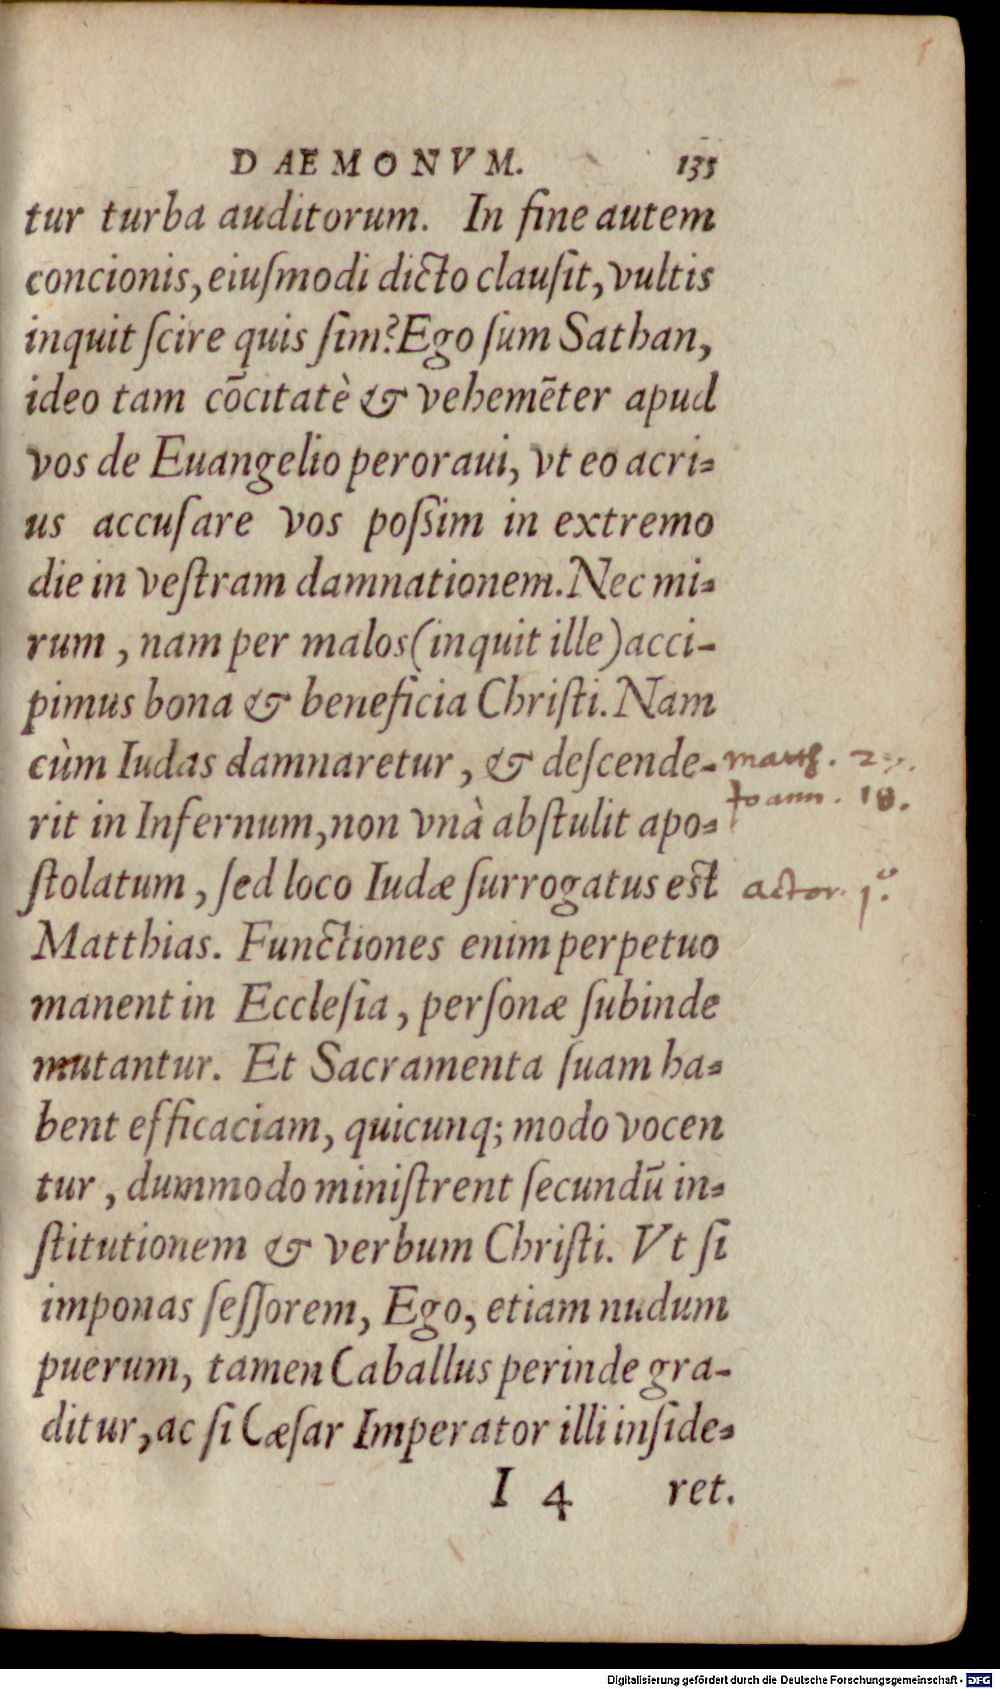 DAEMONVM. 135
tur turba auditorum. In fine autem
concionis, eiuſmodi dicto clauſit, vultis
inquit ſcire quis ſim? Ego ſum Sathan,
ideo tam cōcitatè & vehemēter apud
vos de Euangelio peroraui, vt eo acri-
us accuſare vos poſsim in extremo
die in veſtram damnationem. Nec mi-
rum, nam per malos (inquit ille) acci-
pimus bona & beneficia Chriſti. Nam
cùm Iudas damnaretur, & deſcende-
matth. 27.
rit in Infernum, non vnà abſtulit apo-
Joann. 18.
ſtolatum, ſed loco Iudæ ſurrogatus eſt
actor. 1.º
Matthias. Functiones enim perpetuo
manent in Eccleſia, perſonæ ſubinde
mutantur. Et Sacramenta ſuam ha-
bent efficaciam, quicunq; modo vocen
tur, dummodo miniſtrent ſecundū in-
ſtitutionem & verbum Chriſti. Vt ſi
imponas ſeſſorem, Ego, etiam nudum
puerum, tamen Caballus perinde gra-
ditur, ac ſi Cæſar Imperator illi inſide-
I 4 ret.
Digitalisierung gefördert durch die Deutsche Forschungsgemeinschaft - DFG